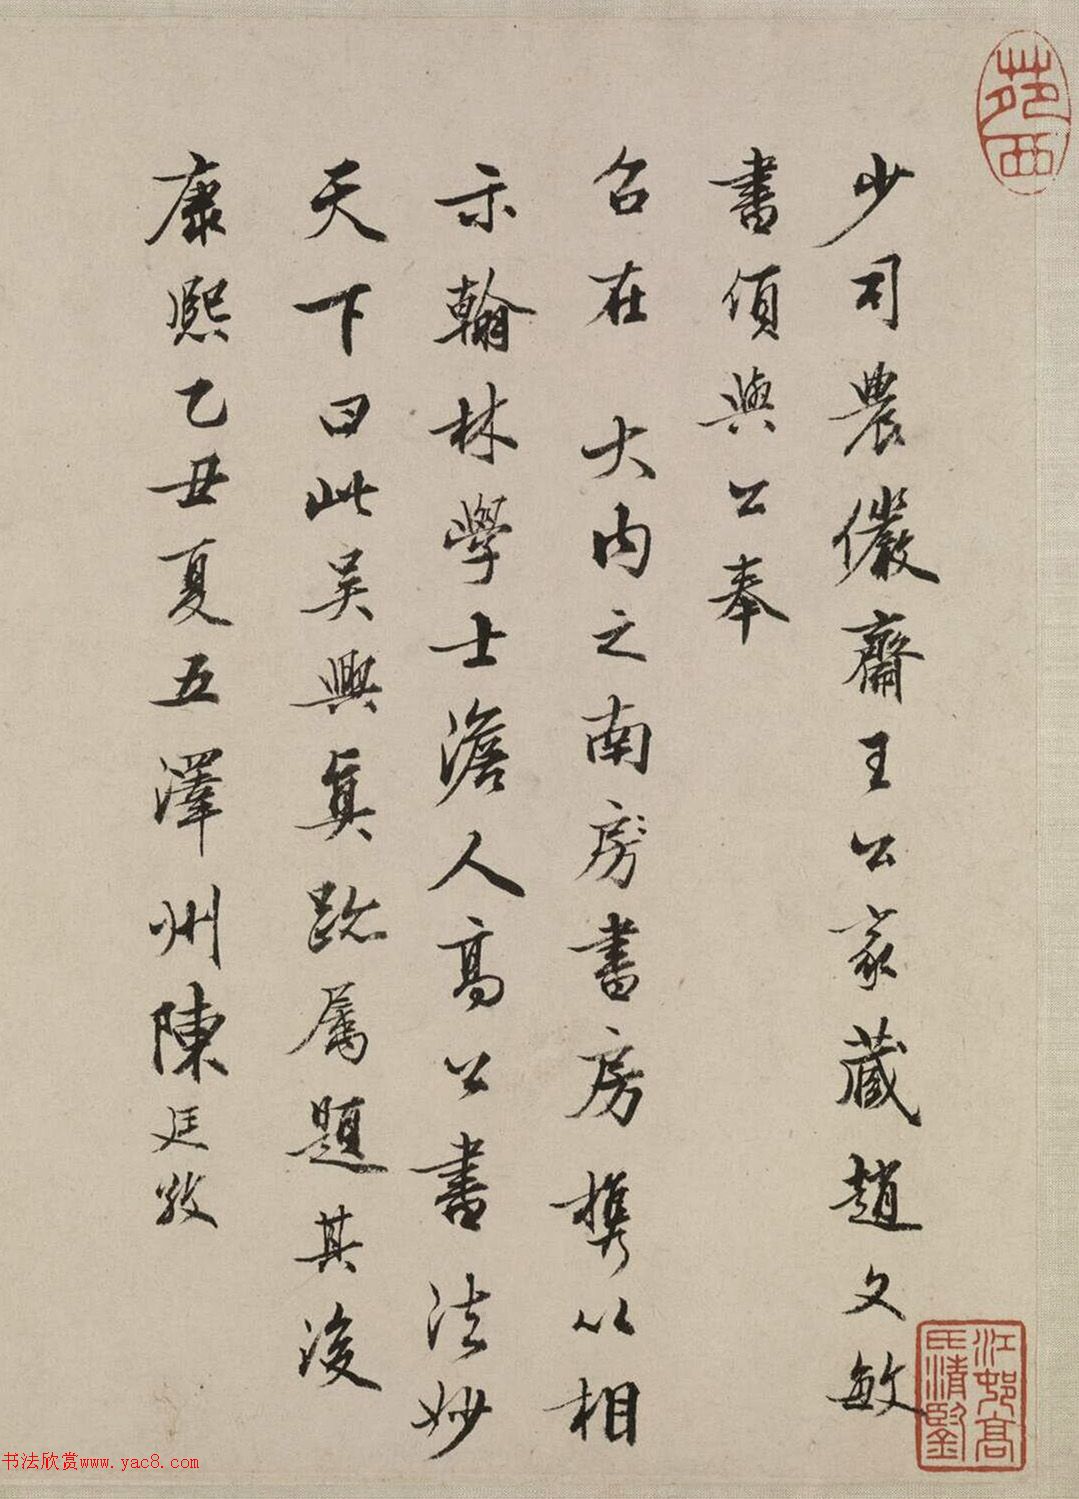 少司農儼齋王公家藏趙文敏
書須與公奉
召在 大内之南房書房攜以相
示翰林學士澹人高公書法妙
天下曰此吳興真跡屬題其後
康熙乙丑夏五澤州陳廷敬
苑西
江邨高氏清鑒
书法欣赏www.yac8.com